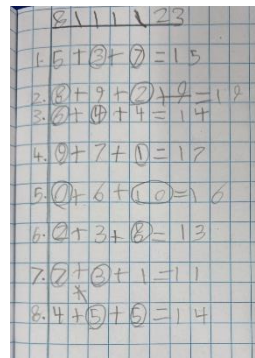 8 11 11 23
1. 5 + 3 + 7 = 15
2. 8 + 9 + 2 + 9 = 19
3. 6 + 4 + 4 = 14
4. 9 + 7 + 1 = 17
5. 0 + 6 + 10 = 16
6. 2 + 3 + 8 = 13
7. 7 + 3 + 1 = 11
8. 4 + 5 + 5 = 14